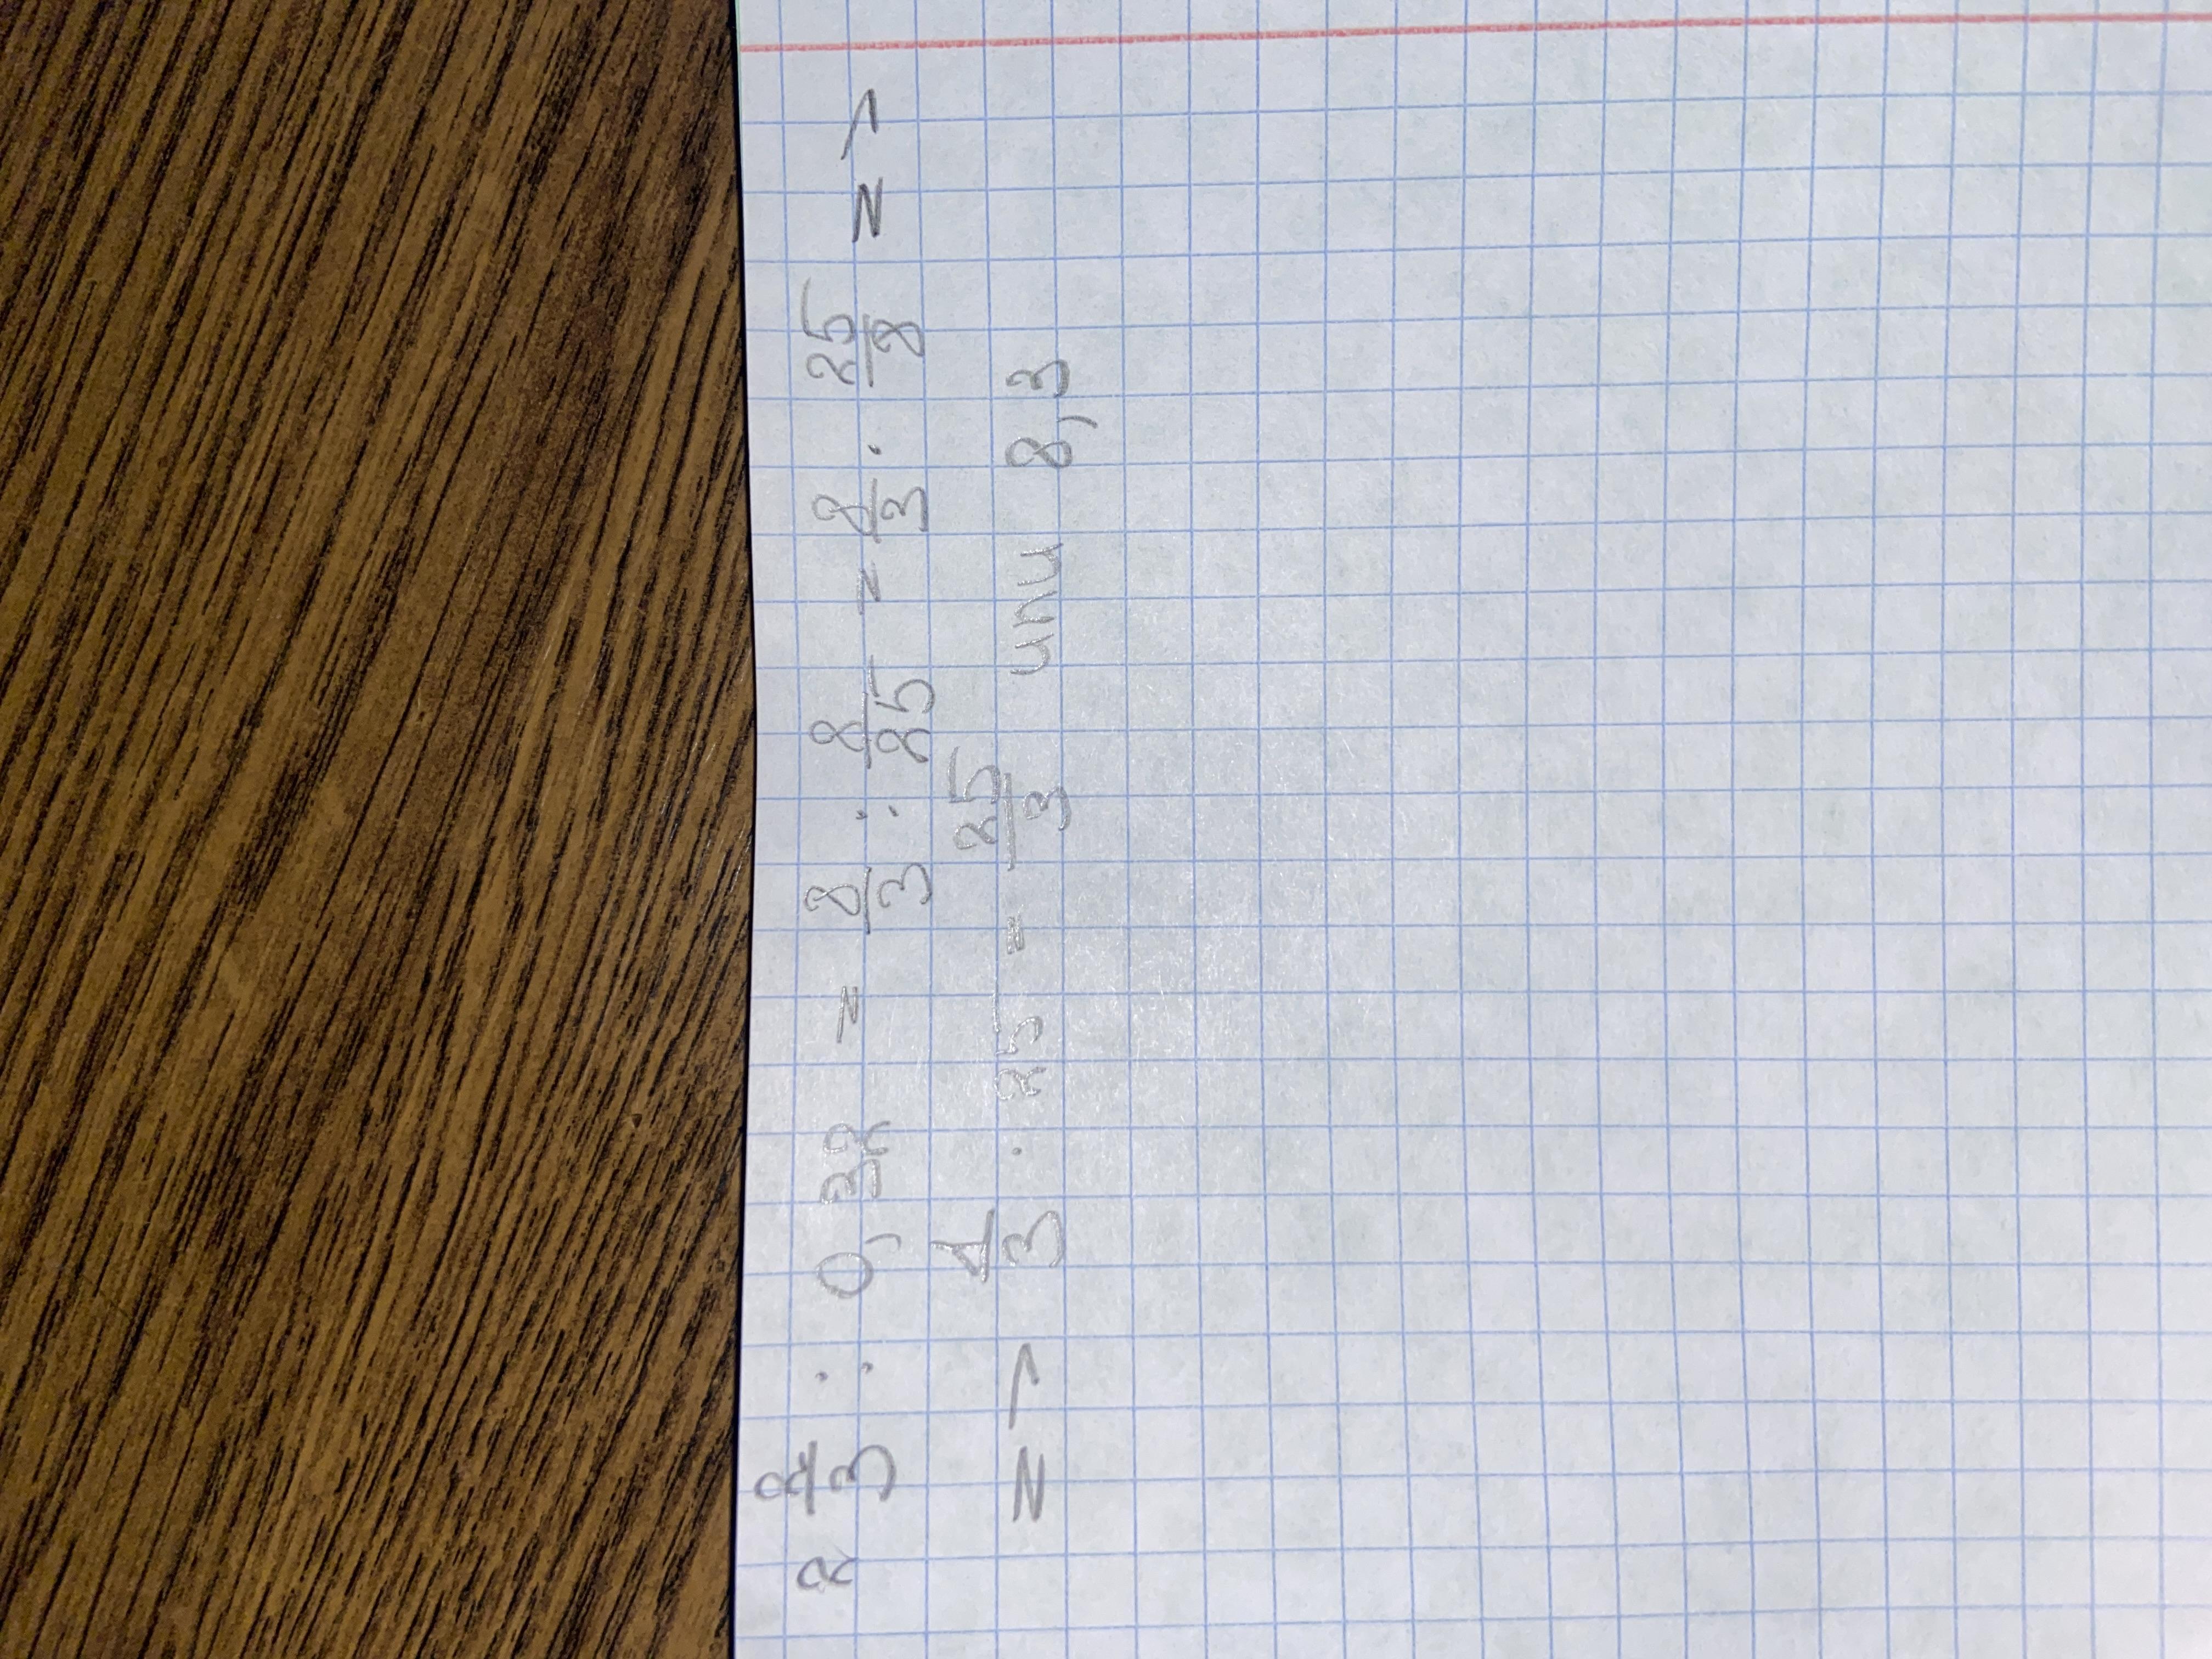 2 2/3 : 0,32 = 8/3 : 8/25 = 8/3 · 25/8 = >
= > 1/3 · 25 = 25/3 или 8,3